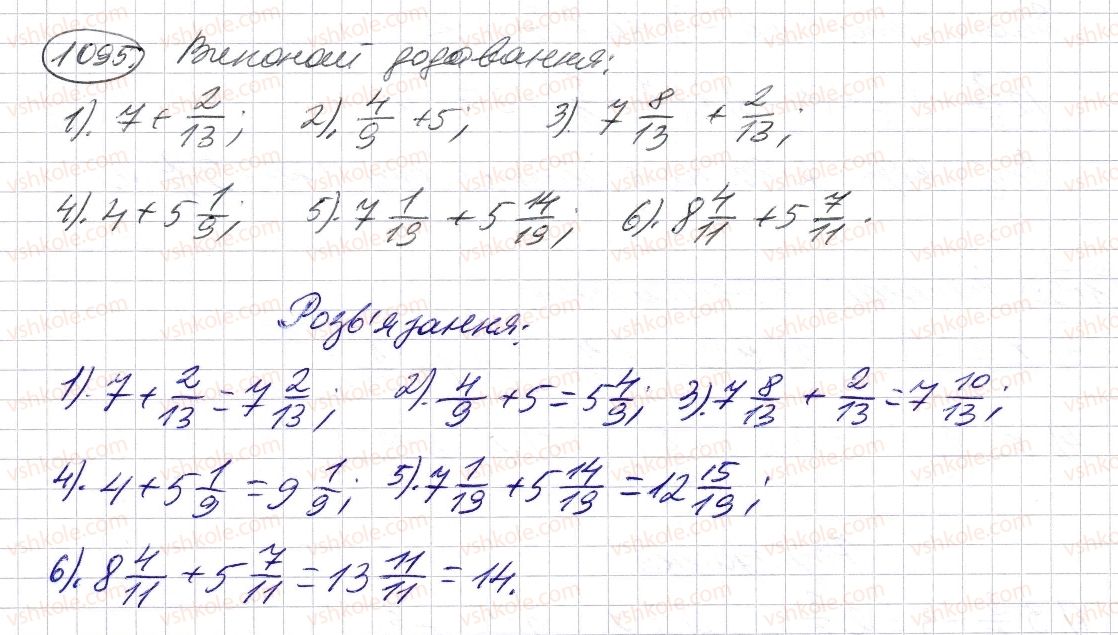 1095. Виконай додавання:
1). 7 + 2/13; 2). 4/9 + 5; 3). 7 8/13 + 2/13;
4). 4 + 5 1/9; 5). 7 1/19 + 5 14/19; 6). 8 4/11 + 5 7/11.
Розв'язання:
1). 7 + 2/13 = 7 2/13; 2). 4/9 + 5 = 5 4/9; 3). 7 8/13 + 2/13 = 7 10/13;
4). 4 + 5 1/9 = 9 1/9; 5). 7 1/19 + 5 14/19 = 12 15/19;
6). 8 4/11 + 5 7/11 = 13 11/11 = 14.